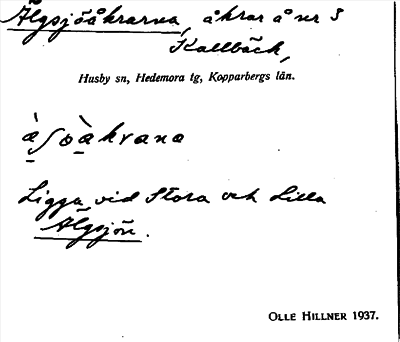 Älgsjöåkrarna, åkrar å nr 3
Kallbäck,
Husby sn, Hedemora tg, Kopparbergs län.
Ligga vid Stora och Lilla
Älgsjön.
OLLE HILLNER 1937.